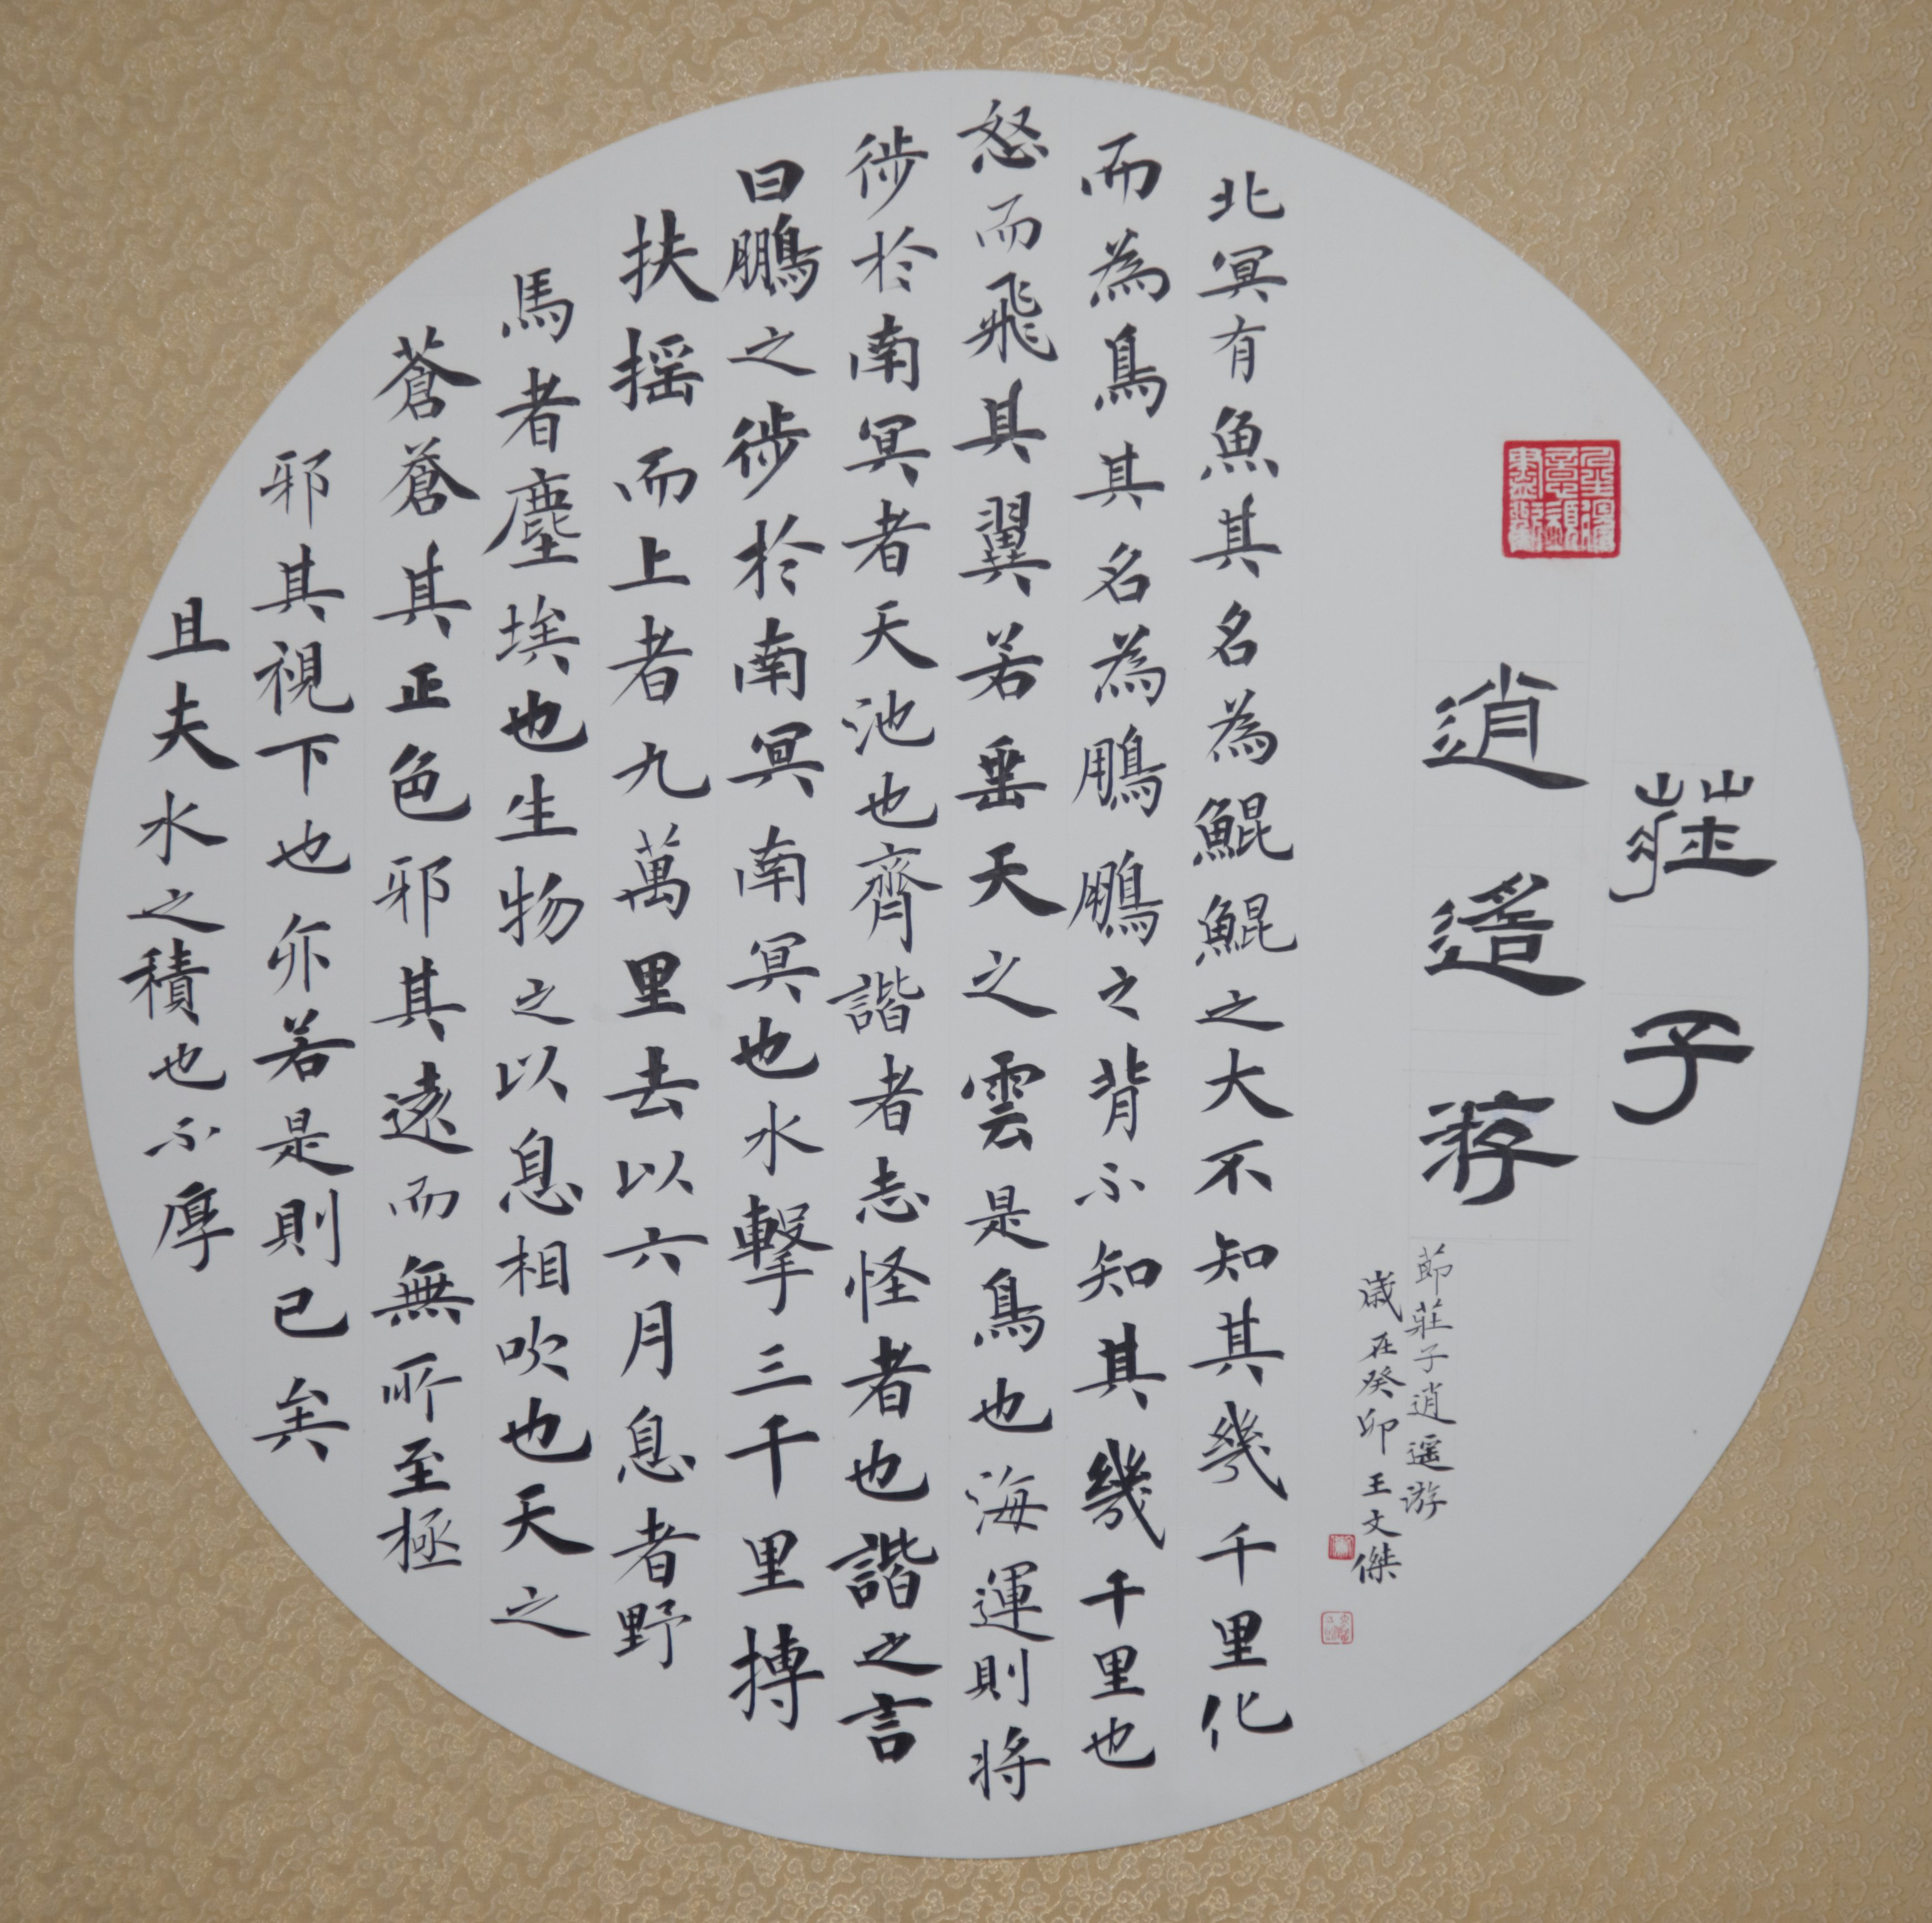 莊子
逍遙游
節莊子逍遥游
歲在癸卯王文傑
北冥有魚其名為鯤鯤之大不知其幾千里化
而為鳥其名為鵬鵬之背不知其幾千里也
怒而飛其翼若垂天之雲是鳥也海運則將
徙於南冥者天池也齊諧者志怪者也諧之言
曰鵬之徙於南冥南冥也水擊三千里摶
扶摇而上者九萬里去以六月息者野
馬者塵埃也生物之以息相吹也天之
蒼蒼其正色邪其遠而無所至極
邪其視下也亦若是則已矣
且夫水之積也不厚